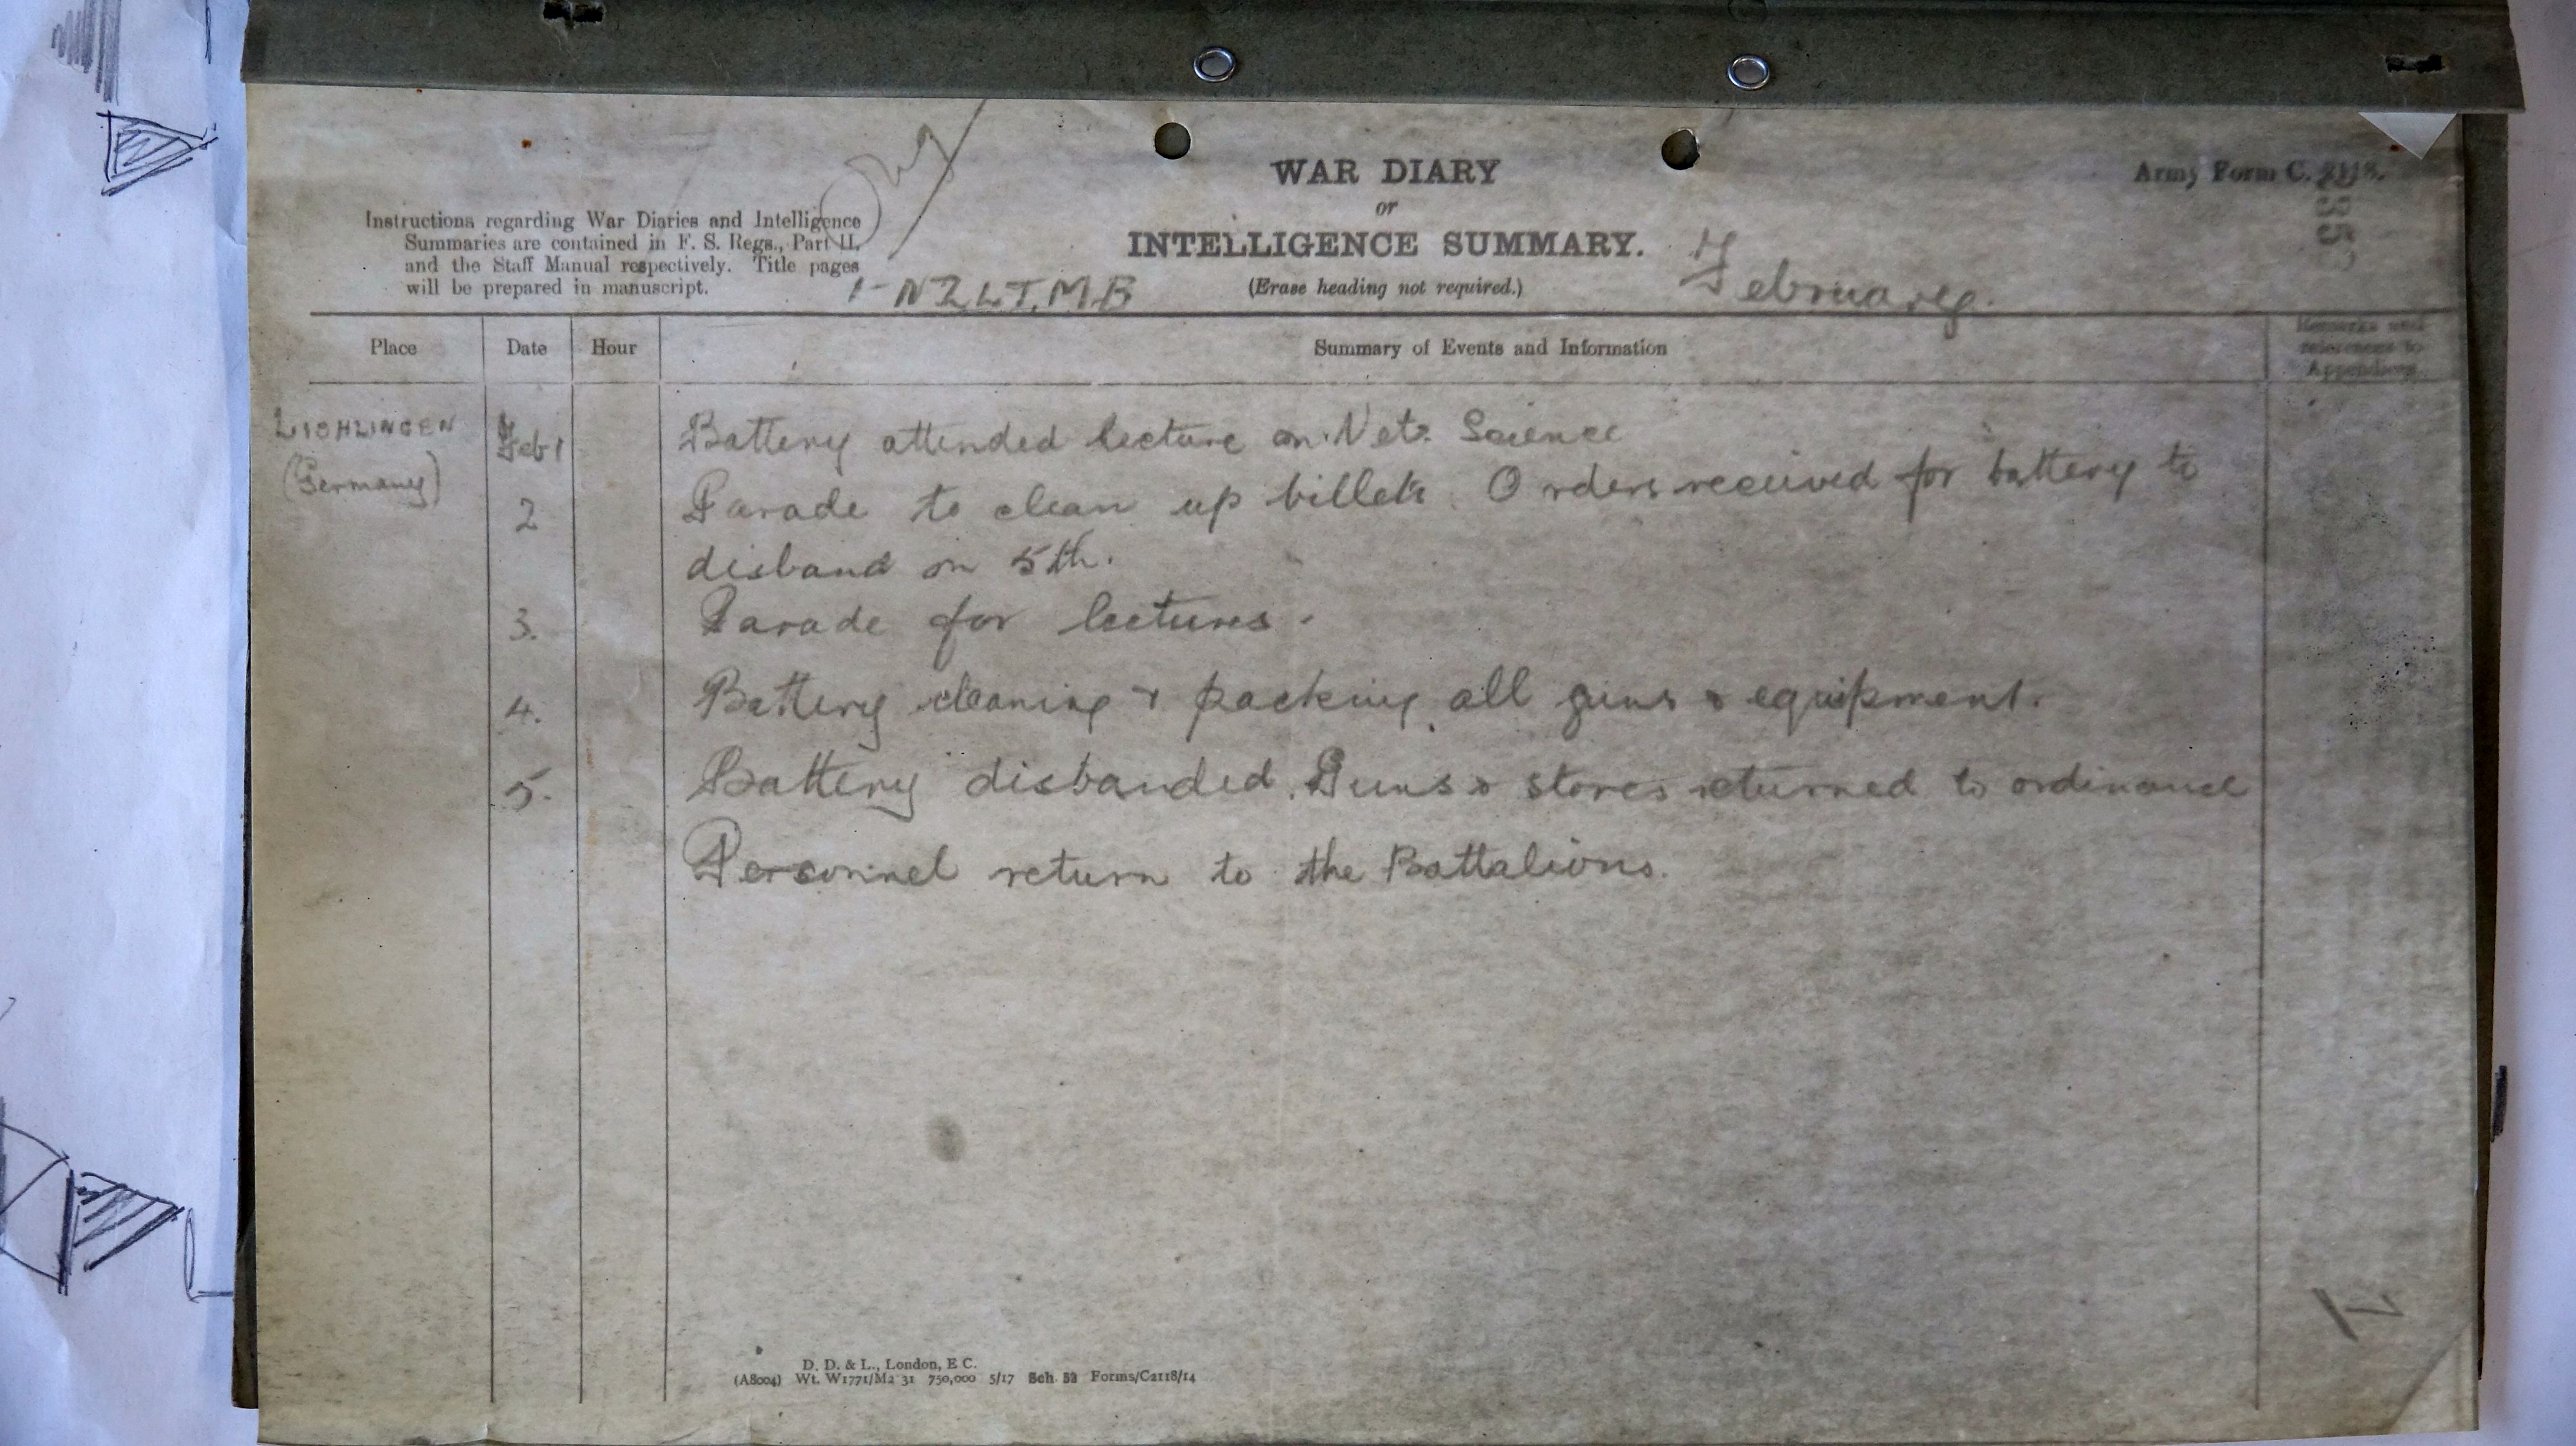 WAR DIARY
or
INTELLIGENCE SUMMARY.
(Erase heading not required.)
Army Form C. 2118.
Instructions regarding War Diaries and Intelligence
Summaries are contained in F. S. Regs., Part II.
and the Staff Manual respectively. Title pages
will be prepared in manuscript.
1 NZ L.T.M.B
February.
Place Date Hour Summary of Events and Information Remarks and
references to
Appendices
LICHLINGEN
(Germany)
Feb 1 Battery attended lecture on Vet. Science
2 Parade to clean up billets. Orders received for battery to
disband on 5th.
3. Parade for lectures.
4. Battery cleaning & packing all guns & equipment.
5. Battery disbanded. Guns & stores returned to ordinance
Personnel return to the Battalions.
D. D. & L., London, E C.
(A8004) Wt. W1771/M2 31 750,000 5/17 Sch. 52 Forms/C2118/14